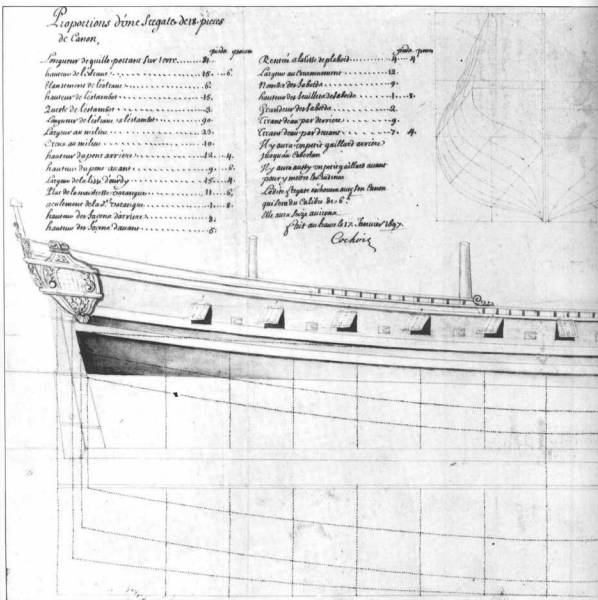 Proportions d'une fregate de 18. pieces
de Canon,
pieds pouces
Longueur de quille portant sur terre ...... 81.
hauteur de l'estraue ...... 15. 6.
Eslancement de l'estraue ...... 6.
hauteur de l'estambot ...... 15.
Queste de l'estambot ...... 3.
Longueur de l'estraue a l'estambot ...... 90.
Largeur au milieu ...... 23.
Creux au milieu ...... 10.
hauteur du pont arriere ...... 12. 4.
hauteur du pont auant ...... 9.
Largeur de la lisse d'ourdy ...... 15. 4.
Plat de la maistresse varangue ...... 11. 6.
acculement de la d.e varangue ...... 1. 8.
hauteur des façons d'arriere ...... 8.
hauteur des façons d'auant ...... 5.
pieds pouces
Rentré a la lisse de plabord ...... 4. 4
Largeur au Couronnement ...... 12.
Nombre des sabords ...... 9.
hauteur des feuillets des sabords ...... 1. 8.
Grandeur des sabords ...... 2.
Tirant d'eau par derriere ...... 9.
Tirant d'eau par deuant ...... 7. 4.
Il y aura un petit gaillard arriere
jusqu'au Cabestan
Il y aura aussy un petit gaillard auant
pour y mettre les Cuisines
Canon
qui sera du Calibre de 6.
Elle aura Seize auirons
fait au haure le 17. Januier 1697.
Cochois